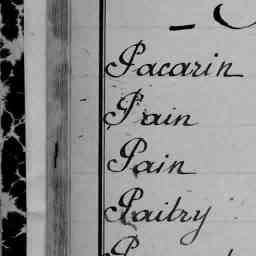 Pacarin
Pain
Pain
Paitry